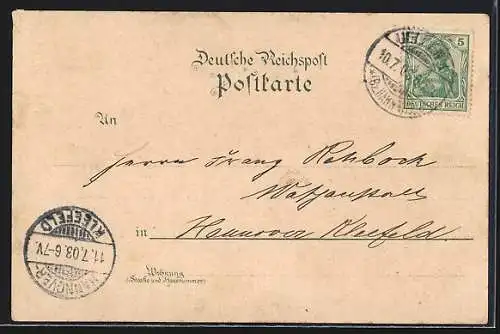 Deutsche Reichspost
Postkarte
5
DEUTSCHES REICH
10.7.
An
Herrn Franz Rehbock
in Hannover Kleefeld.
HANNOVER
11.7.03.6-7V.
KLEEFELD
Wohnung
(Straße und Hausnummer)